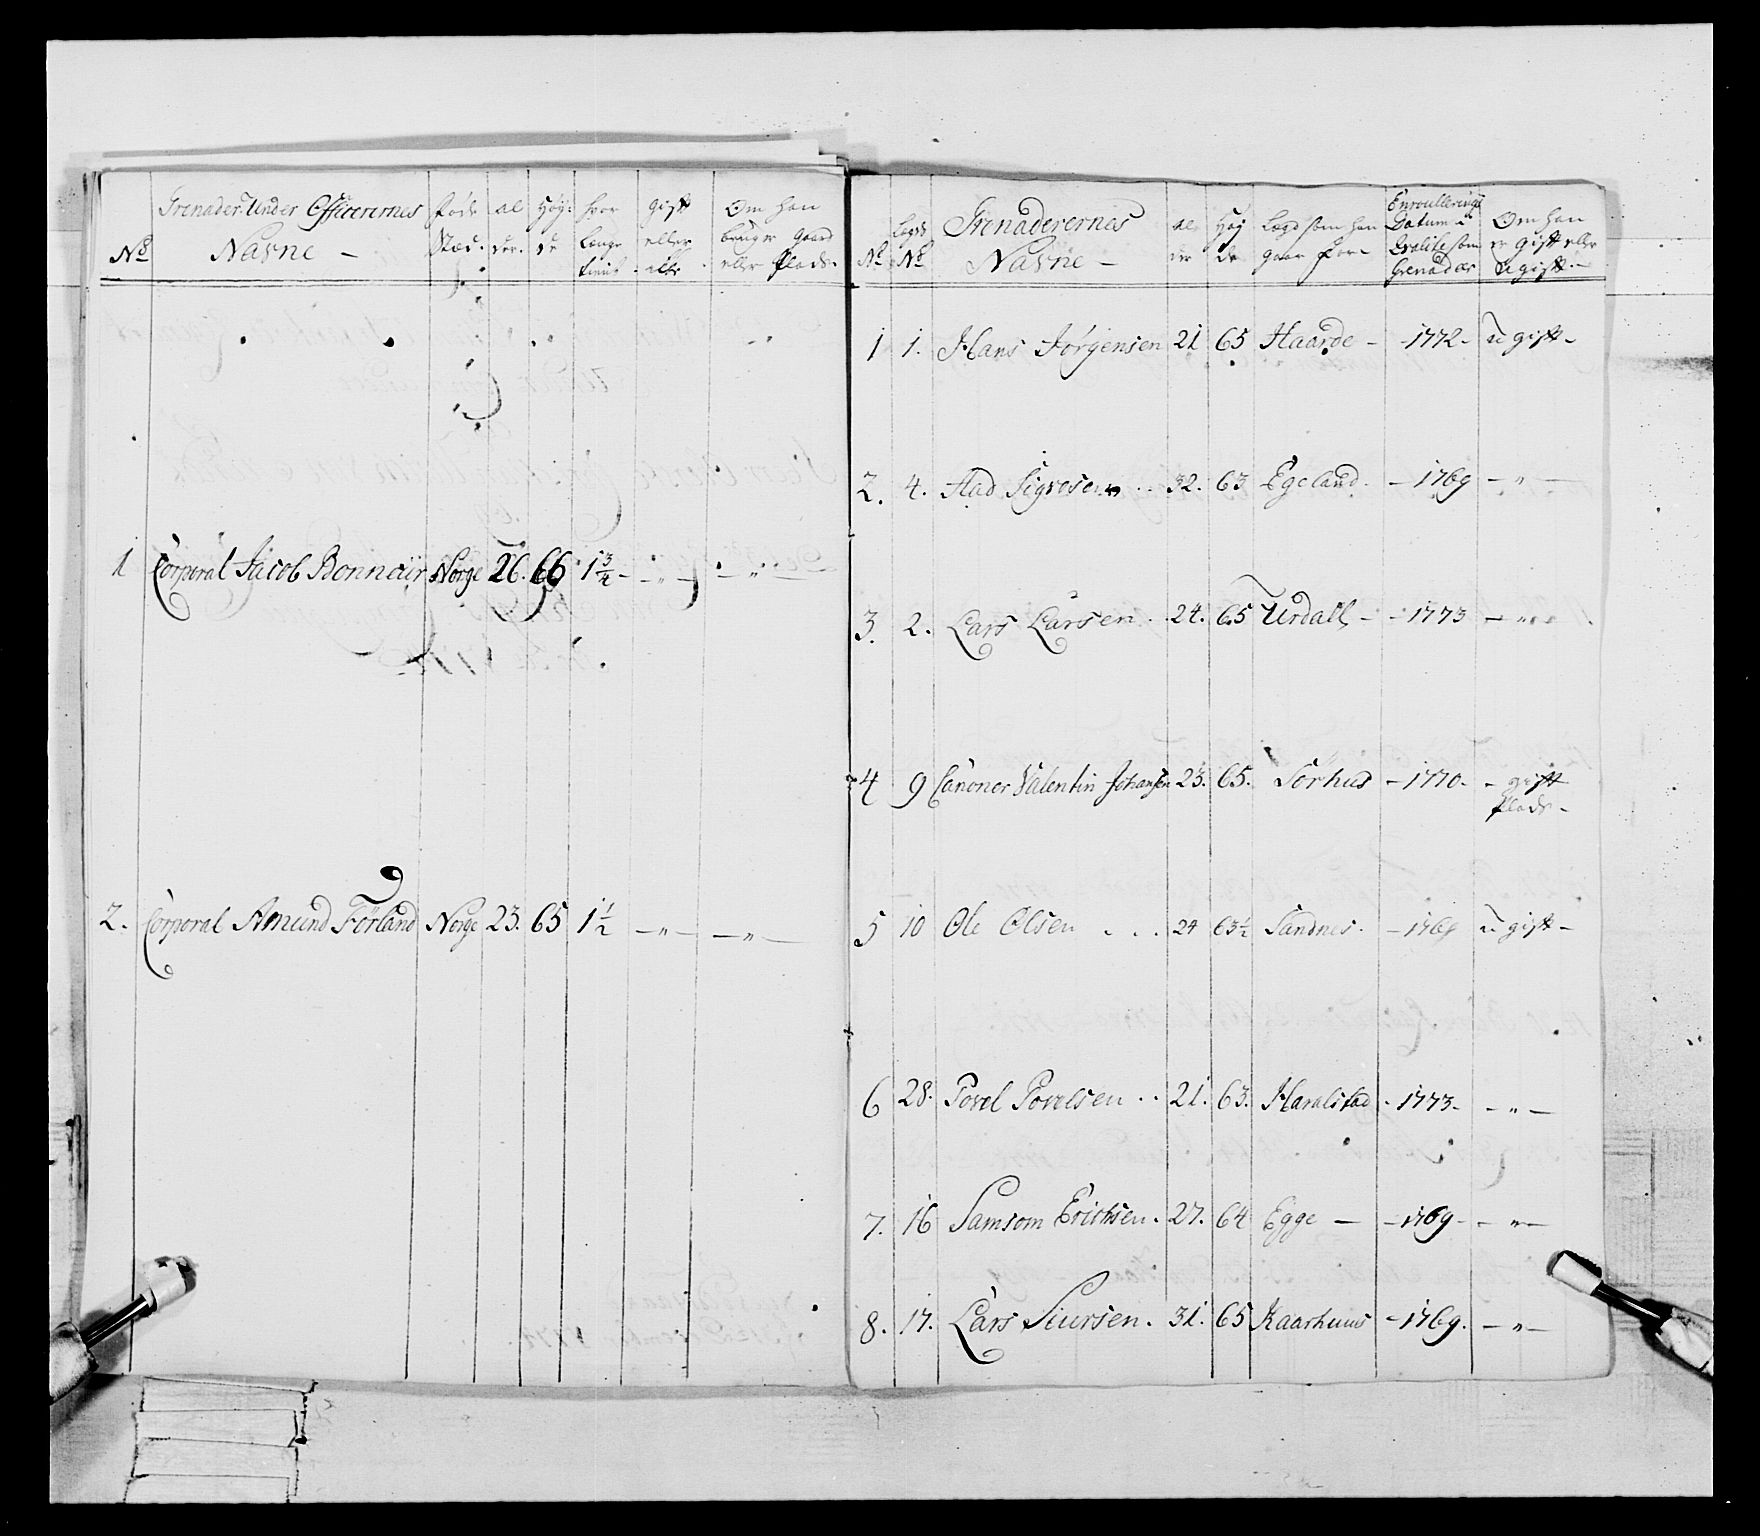 No
Grenader Under Officerernes Navne -
Føde Stæd.
al der.
Høy: de
hvor Længe tient
gift eller eÿ
Om han bruger Gaard eller Plads.
1 Corporal Jacob Bonnair Norge 26. 66 1 3/4 - - " - - " -
2. Corporal Amund Förland Norge 23. 65 1 1/2 - " - - " -
No
Legds No
Grenaderernes Navne -
al der
Høy de
Lægd som han gaar for -
Enroullerings Datum i Qvalite som Grenader
Om han er gift eller ugift. -
1 1. Hans Jörgensen 21 65 Haarde - - 1772 - ugift -
2. 4. Aad Sigvosen .. 32. 63 Egeland. - 1769 - " -
3. 2. Lars Larsen . 24. 65 Urdall - - 1773 - " -
4 9 Canoner Valentin Johansen 23. 65. Sörhus - 1770. - gift
Plads -
5 10 Ole Olsen . . . 24 63 1/2 Sandnes. - 1769 ugift -
6 28. Povel Povelsen .. 21. 63. Haralstad - 1773 - - " -
7. 16 Samsom Erichsen. 27. 64 Egge - - 1769 - - " -
8. 17. Lars Siursen. 31. 65 Kaarhuus - 1769. - " -